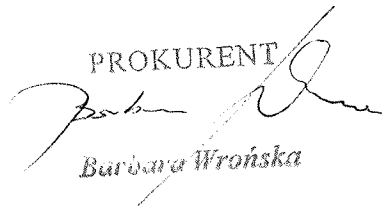 PROKURENT
Barbara Wrońska